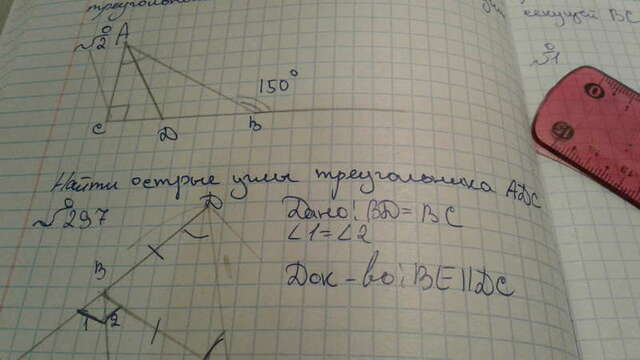 секущей BC
№2
A
№1
150°
C
D
B
Найти острые углы треугольника ADC
№297
D
Дано: BD = BC
∠1 = ∠2
B
Док-во: BE || DC
1 2